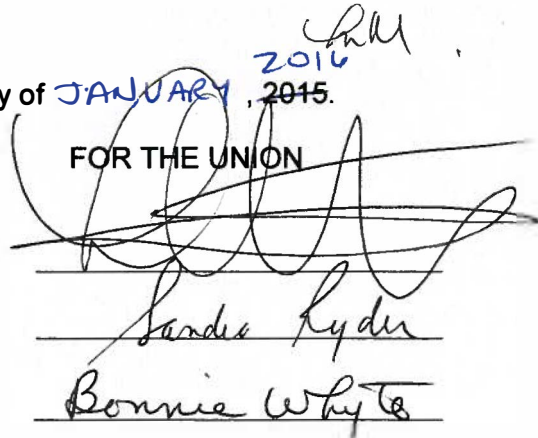 2016
y of JANUARY, 2015.
FOR THE UNION
Sandra Ryder
Bonnie Whyte